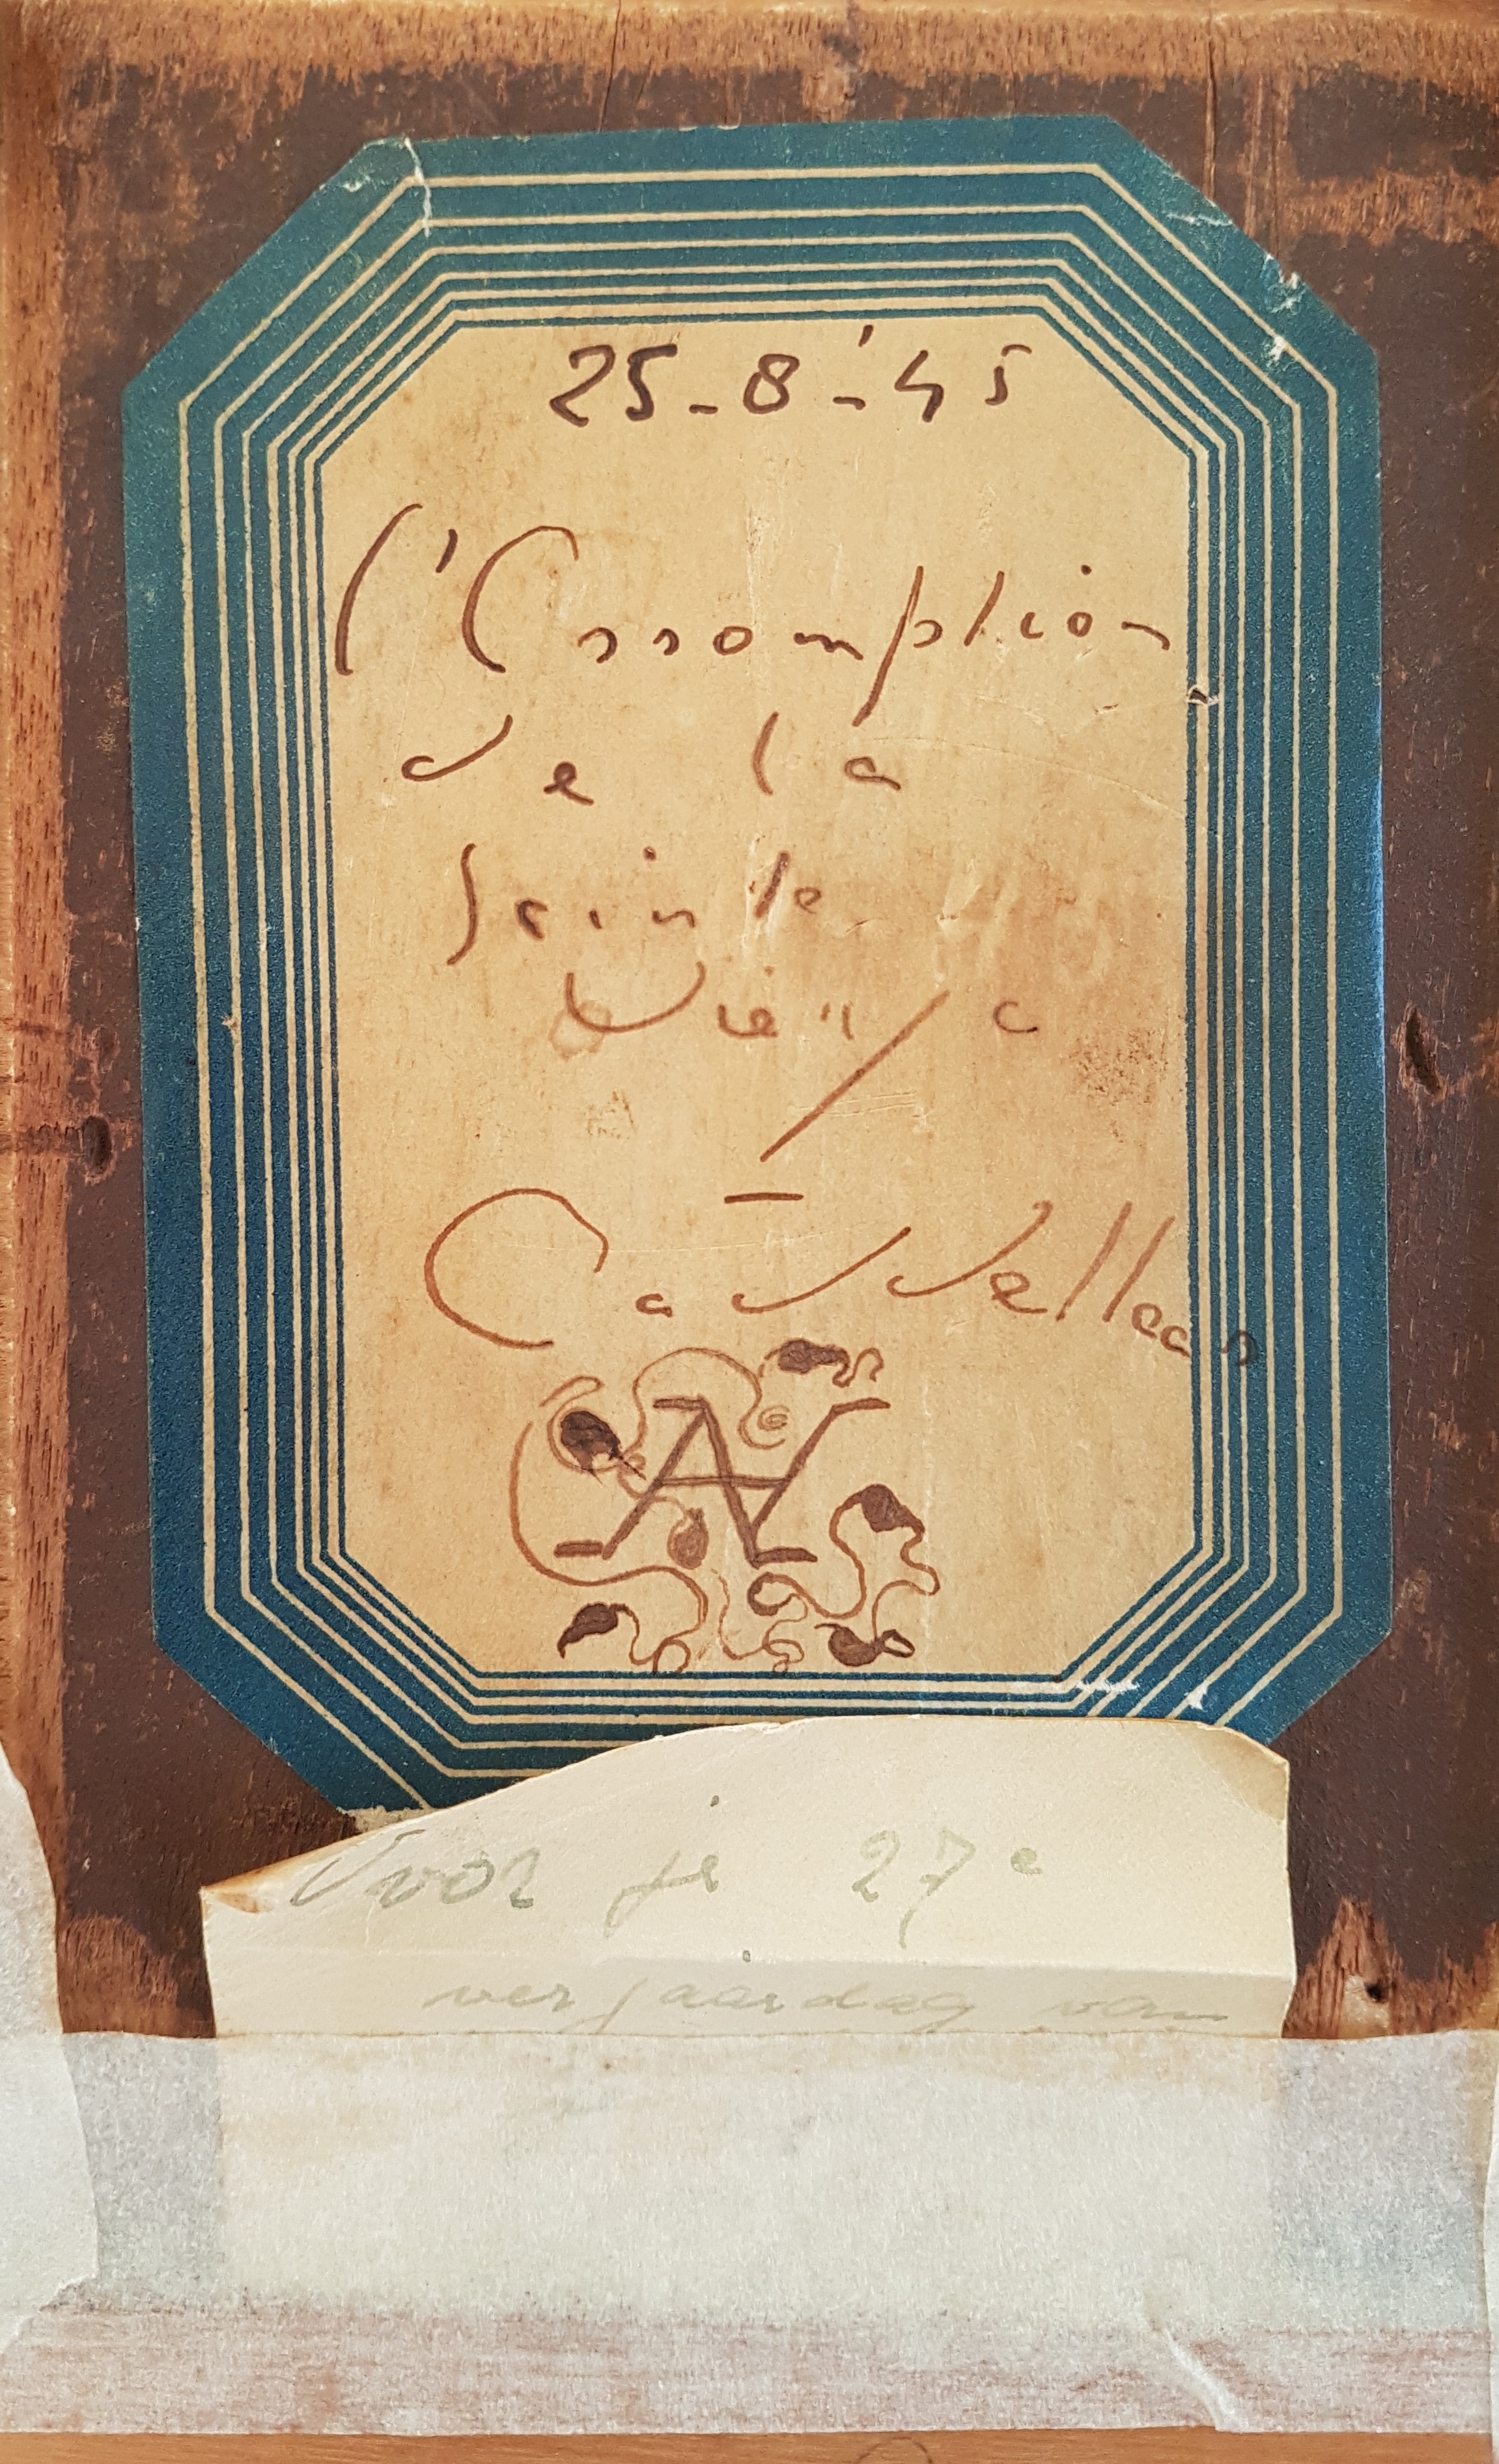 25-8-'45
l'Assomption
de la
Sainte
Vierge
AV
Voor je 27e
verjaardag van